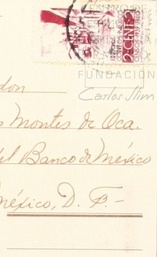 FUNDACIÓN
Carlos Slim
don
s Montes de Oca.
del Banco de México
México, D. F.-